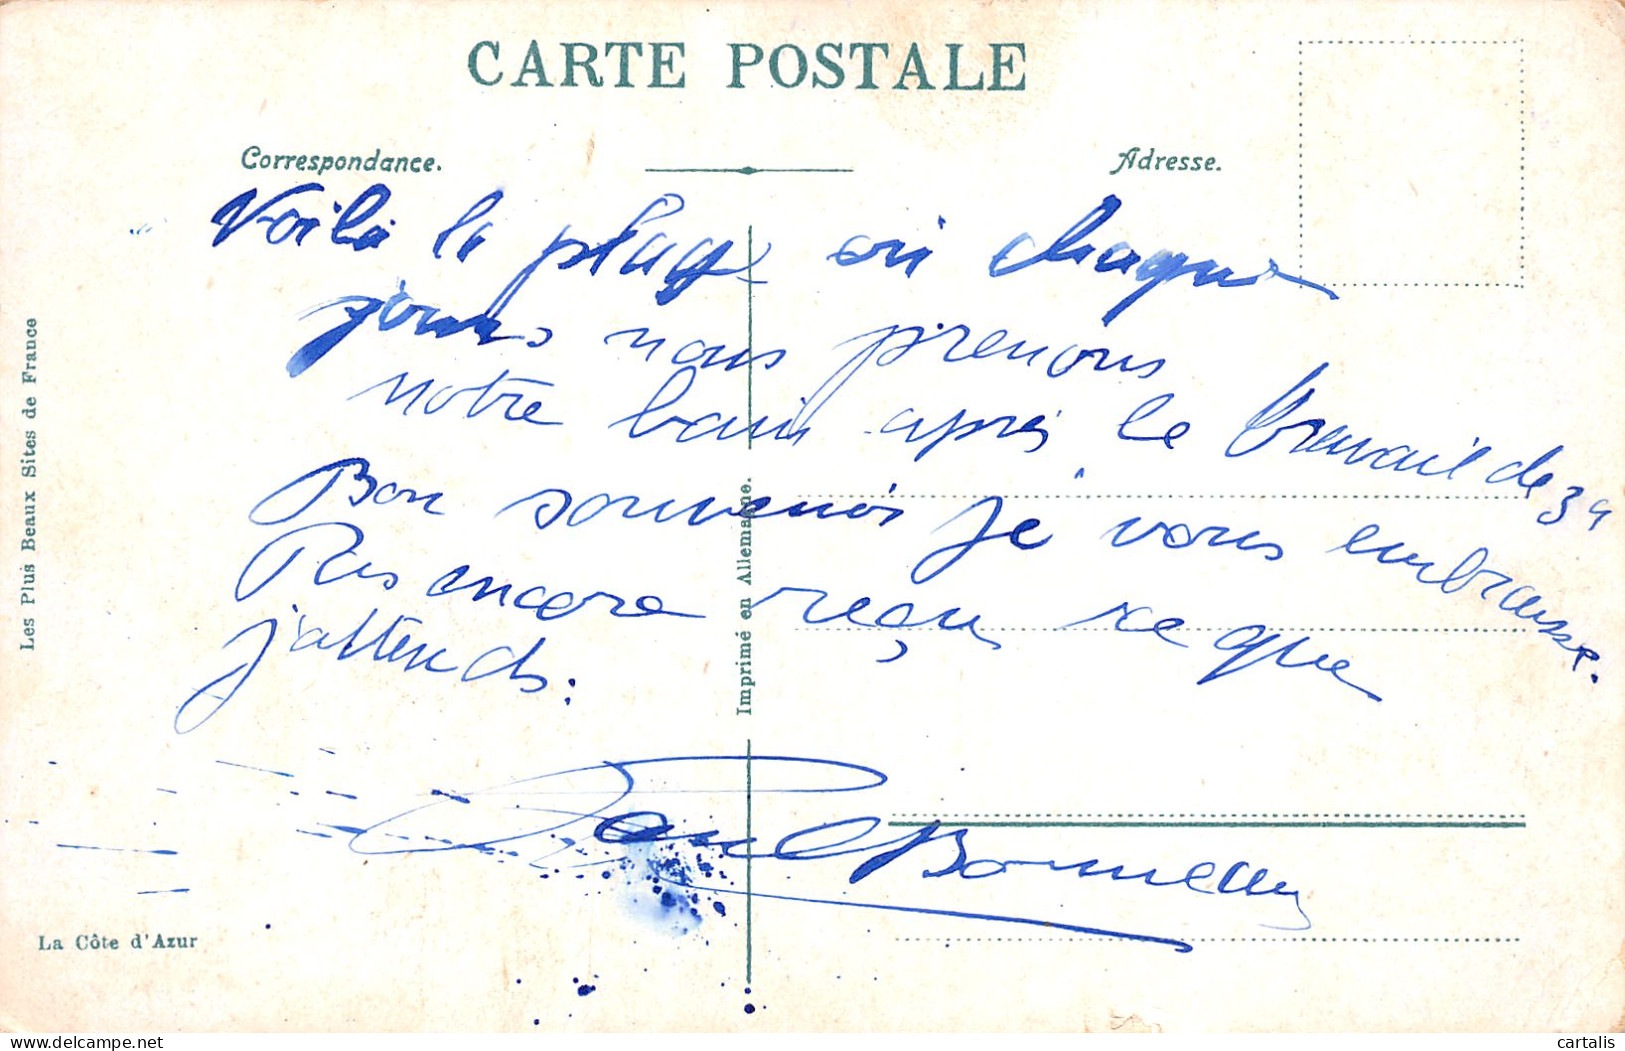 CARTE POSTALE
Correspondance.
Adresse.
Voilà la plage où chaque
jours nous prenons
notre bain après le travail de
Bon souvenir je vous embrasse.
Pas encore reçu ce que
j'attends.
Paul
Les Plus Beaux Sites de France
Imprimé en Allemagne.
La Côte d'Azur
delcampe.net
cartalis